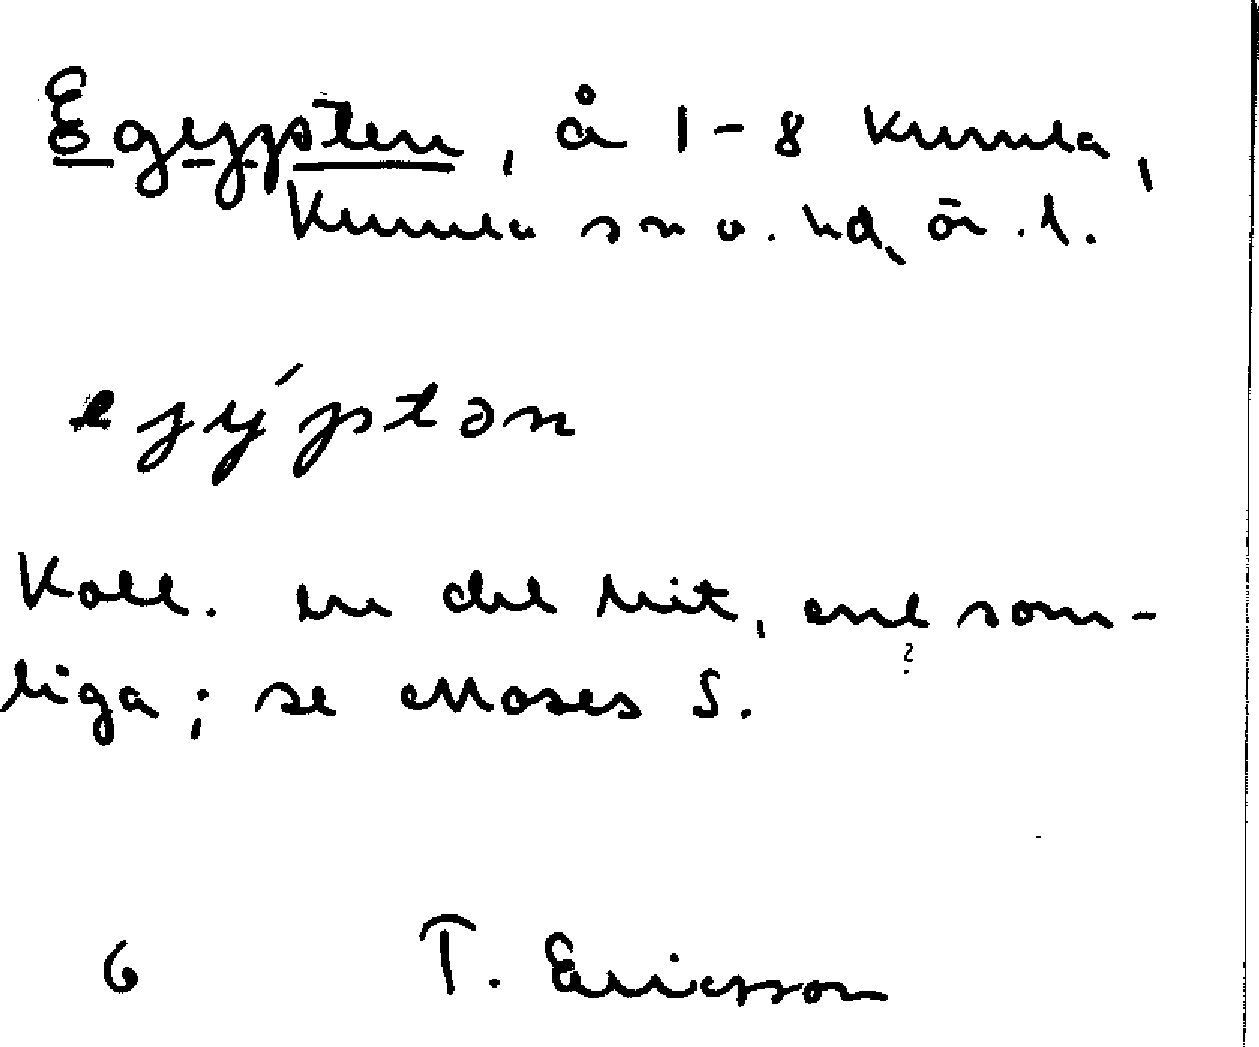 Egypten, å 1-8 Kumla,
Kumla sn o. hd, ör. l.
ejýptən
Koll. en del hit, enl som-
liga; se Moses S.
6 T. Ericsson